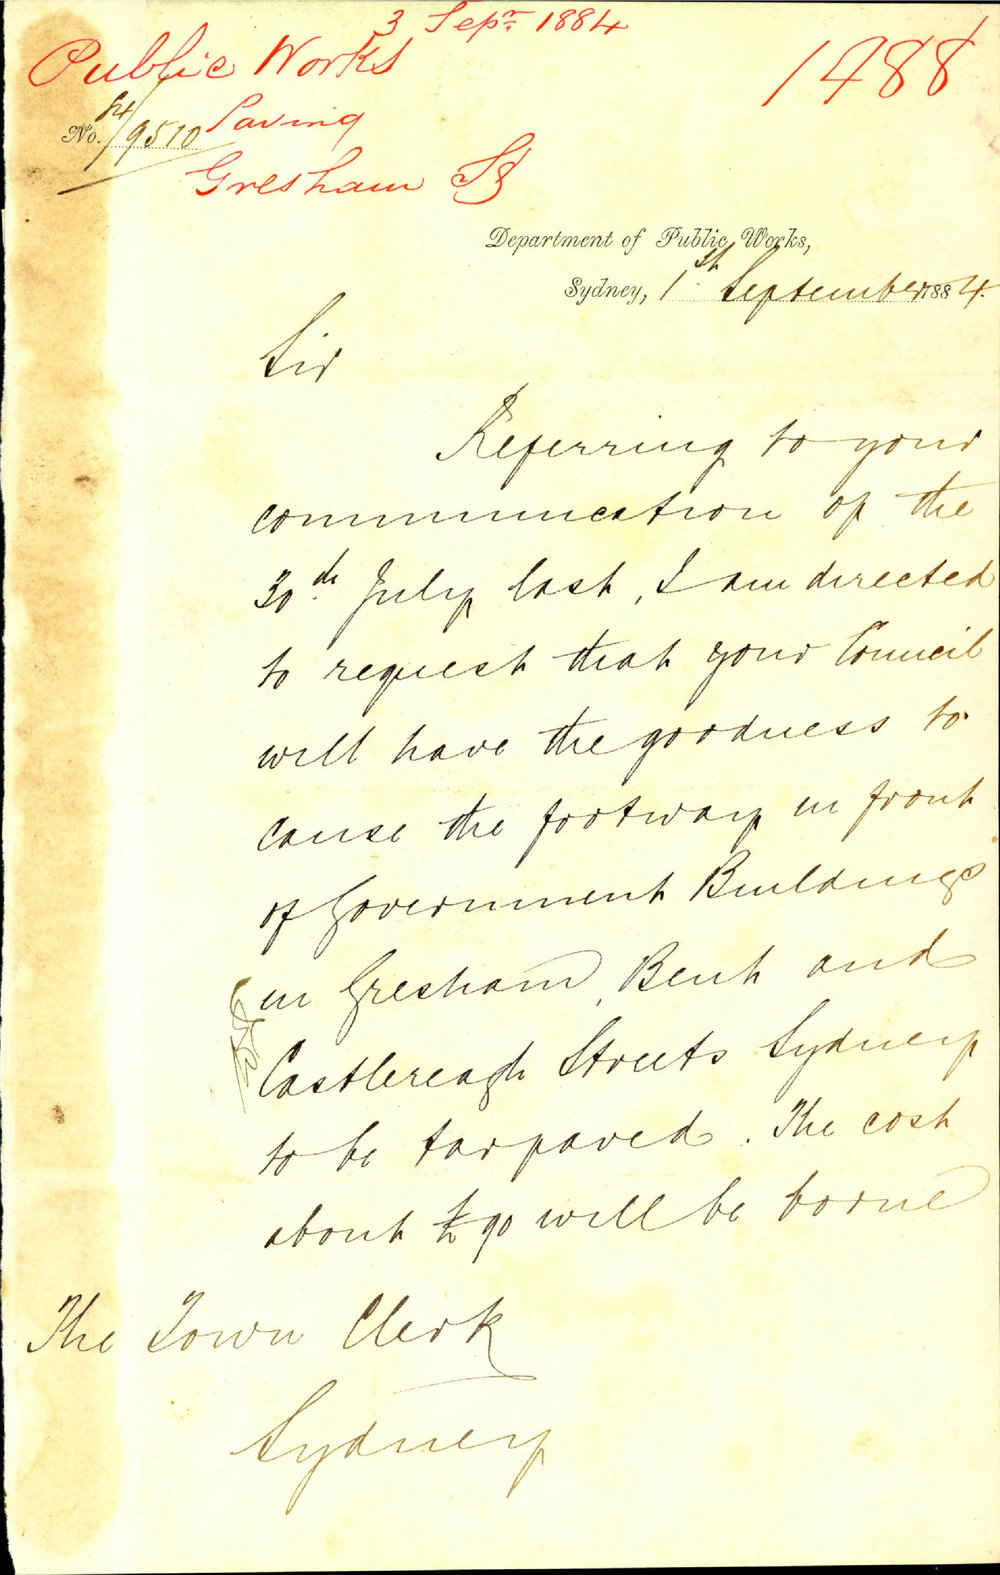 3 Sepr. 1884
Public Works
1488
No. 84/9510
Paving
Gresham St
Department of Public Works,
Sydney, 1st September 1884.
Sir
Referring to your
communication of the
30th July last, I am directed
to request that your Council
will have the goodness to
cause the footway in front
of Government Buildings
in Gresham, Bent and
Castlereagh Streets Sydney
to be tar paved. The cost
about £90 will be borne
The Town Clerk
Sydney